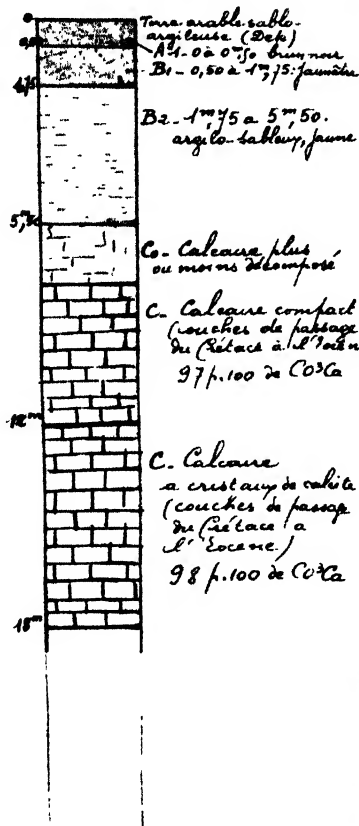 0
Terre arable sablo-
argileuse (Dep)
A-1-0 à 0m,50 brun noir
B1-0,50 à 1m,75: jaunâtre
0,50
1,75
B2-1m,75 a 5m,50.
argilo-sableux, jaune
5,m50
C0-Calcaire plus
ou moins décomposé
C-Calcaire compact
(couches de passage
du Crétacé à l'Eocèn
97 p.100 de CO³Ca
12m
C-Calcaire
a cristaux de calcite
(couches de passage
du Crétacé a
l'Eocene)
98 p.100 de CO³Ca
18m